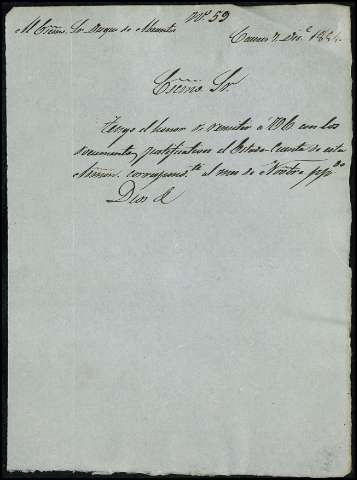 Nº 59
Al Excmo. Sr. Duque de
7 Dice. 1884.
Excmo Sr
Tengo el honor de remitir a V.E. con los
documentos justificativos el Estado-Cuenta de esta
correspondte al mes de Novbre ppdo
Dios &